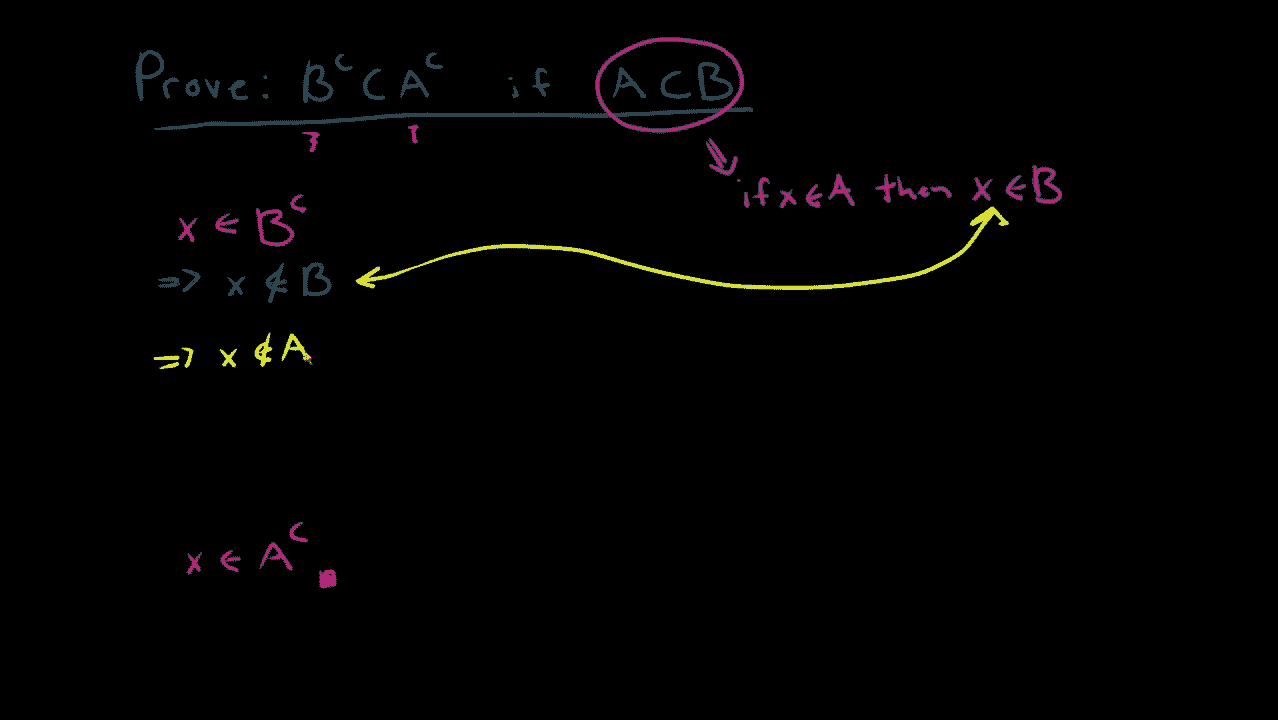 Prove: Bᶜ ⊂ Aᶜ if A ⊂ B
if x ∈ A then x ∈ B
x ∈ Bᶜ
⇒ x ∉ B
⇒ x ∉ A
x ∈ Aᶜ